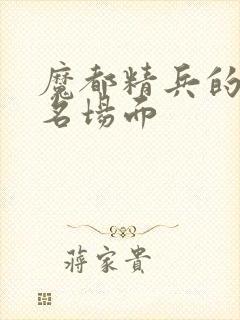 魔都精兵的
名場面
蔣家貴